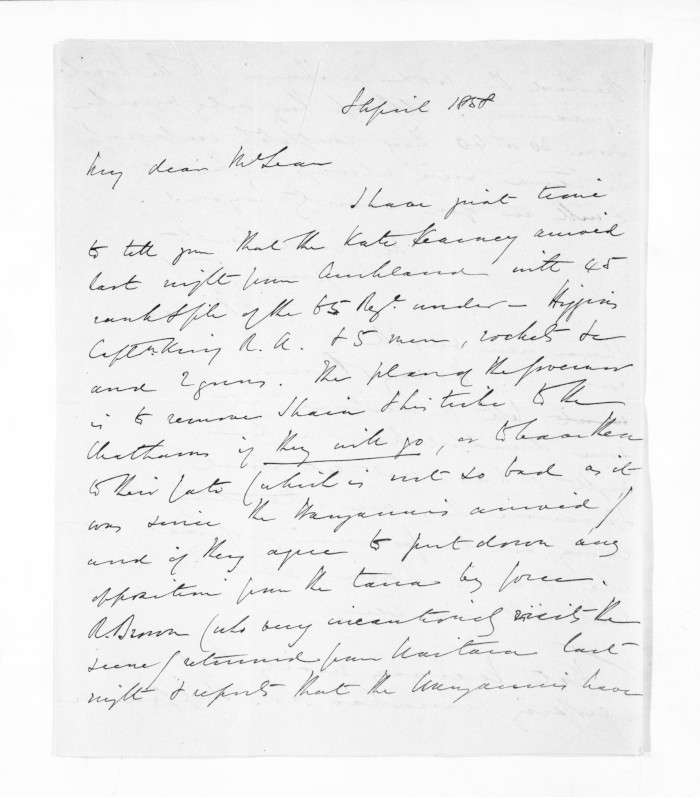 April 1858
My dear McLean
I have just time
to tell you that the Kate Kearney arrived
last night from Auckland with 45
rank & file of the 65 Regt. under - Higgins
Captn. King R. A. & 5 men, rockets &c
and 2 guns. The plan of the Governor
is to remove Ihaia & his tribe to the
Chathams if they will go, or to leave them
to their fate (which is not so bad as it
was since the Wanganuis arrived)
and if they agree to put down any
opposition from the taua by force.
R. Brown (who very incautiously visits the
scene) returned from Waitara last
night & reports that the Wanganuis have